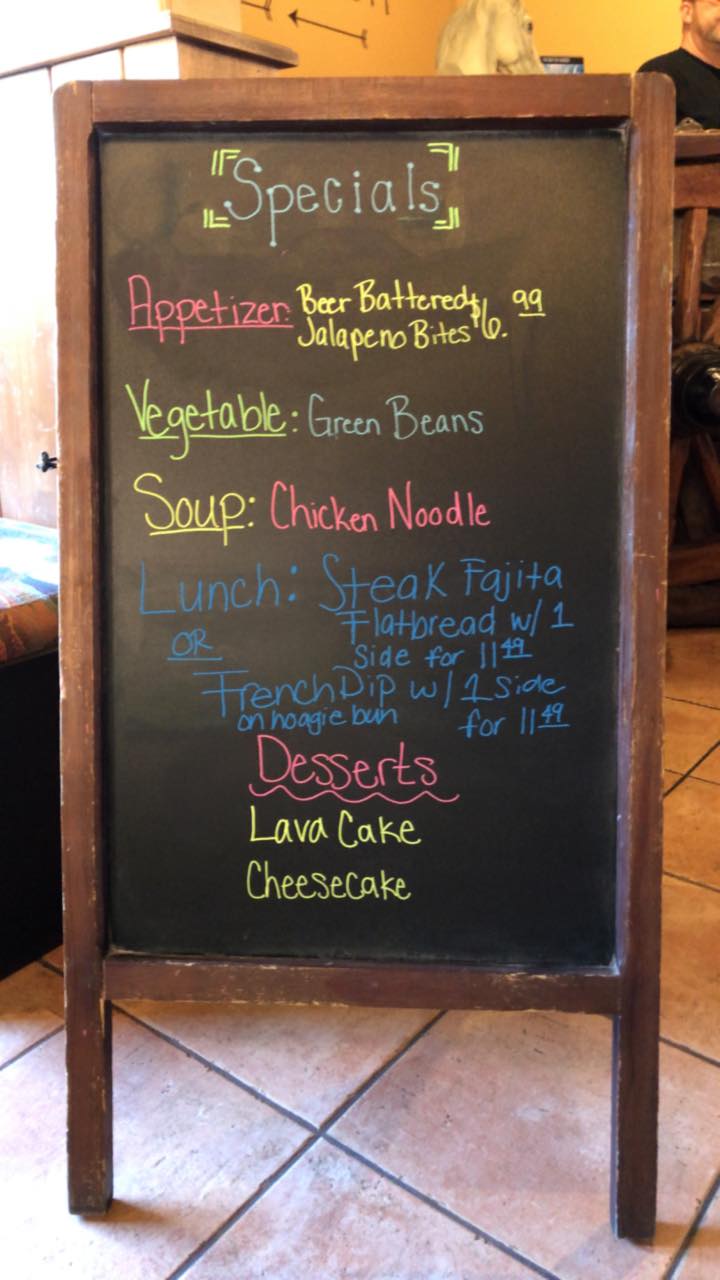 Specials
Appetizer: Beer Battered
Jalapeno Bites $6.99
Vegetable: Green Beans
Soup: Chicken Noodle
Lunch: Steak Fajita
Flatbread w/ 1
OR Side for 11 49
French Dip w/ 1 side
on hoagie bun for 11 49
Desserts
Lava Cake
Cheesecake